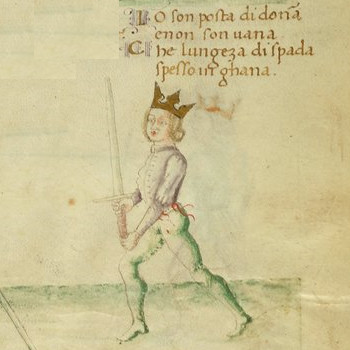 Io son posta di dona
e non son uana.
Che lungeza di spada
spesso in ghana.